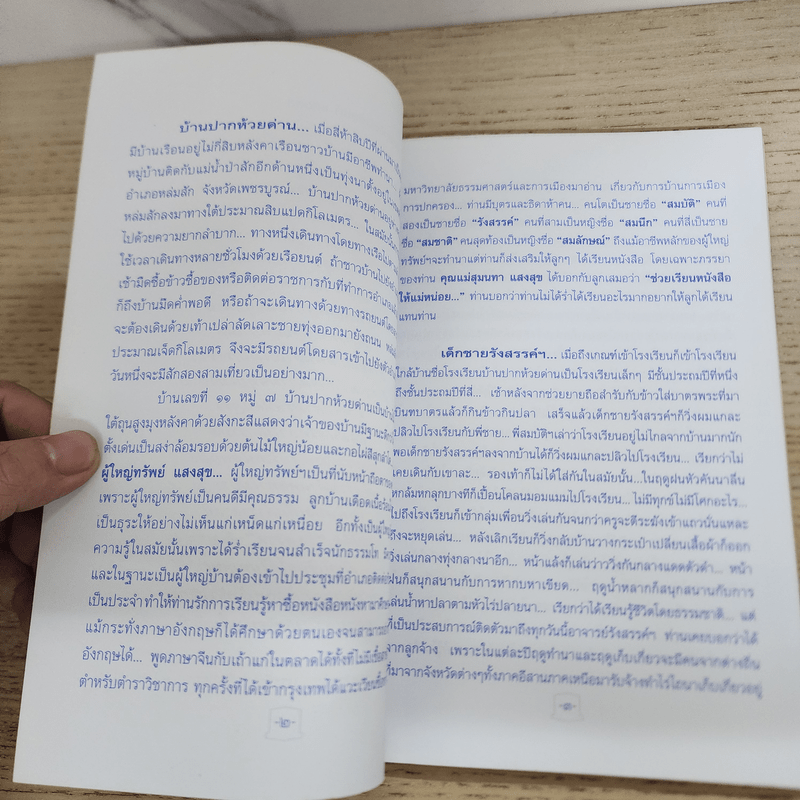 บ้านปากห้วยด่าน... เมื่อสี่ห้าสิบปีที่ผ่านมา
มีบ้านเรือนอยู่ไม่กี่สิบหลังคาเรือนชาวบ้านมีอาชีพทำนา
หมู่บ้านติดกับแม่น้ำป่าสักอีกด้านหนึ่งเป็นทุ่งนาตั้งอยู่ใน
อำเภอหล่มสัก จังหวัดเพชรบูรณ์... บ้านปากห้วยด่าน
หล่มสักลงมาทางใต้ประมาณสิบแปดกิโลเมตร... ในสมัยนั้น
ไปด้วยความยากลำบาก... ทางหนึ่งเดินทางโดยทางเรือ
ใช้เวลาเดินทางหลายชั่วโมงด้วยเรือยนต์ ถ้าชาวบ้านไป
เช้ามืดซื้อข้าวซื้อของหรือติดต่อราชการกับที่ทำการอำเภอ
ก็ถึงบ้านมืดค่ำพอดี หรือถ้าจะเดินทางด้วยทางรถยนต์
จะต้องเดินด้วยเท้าเปล่าลัดเลาะชายทุ่งออกมายังถนน
ประมาณเจ็ดกิโลเมตร จึงจะมีรถยนต์โดยสารเข้าไปยังตัว
วันหนึ่งจะมีสักสองสามเที่ยวเป็นอย่างมาก...
บ้านเลขที่ ๑๑ หมู่ ๗ บ้านปากห้วยด่านเป็น
ใต้ถุนสูงมุงหลังคาด้วยสังกะสีแสดงว่าเจ้าของบ้านมีฐานะดี
ตั้งเด่นเป็นสง่าล้อมรอบด้วยต้นไม้ใหญ่น้อยและกอไผ่สีสุก
ผู้ใหญ่ทรัพย์ แสงสุข... ผู้ใหญ่ทรัพย์ฯเป็นที่นับหน้าถือตา
เพราะผู้ใหญ่ทรัพย์เป็นคนดีมีคุณธรรม ลูกบ้านเดือดเนื้อร้อน
เป็นธุระให้อย่างไม่เห็นแก่เหน็ดแก่เหนื่อย อีกทั้งเป็นผู้
ความรู้ในสมัยนั้นเพราะได้ร่ำเรียนจนสำเร็จนักธรรม
และในฐานะเป็นผู้ใหญ่บ้านต้องเข้าไปประชุมที่อำเภอ
เป็นประจำทำให้ท่านรักการเรียนรู้หาซื้อหนังสือหนังหามา
แม้กระทั่งภาษาอังกฤษก็ได้ศึกษาด้วยตนเองจนสามารถ
อังกฤษได้... พูดภาษาจีนกับเถ้าแก่ในตลาดได้ทั้งที่ไม่มีเชื้อ
สำหรับตำราวิชาการ ทุกครั้งที่ได้เข้ากรุงเทพได้แวะเวียน
-๒-
มหาวิทยาลัยธรรมศาสตร์และการเมืองมาอ่าน เกี่ยวกับการบ้านการเมือง
การปกครอง... ท่านมีบุตรและธิดาห้าคน... คนโตเป็นชายชื่อ “สมบัติ” คนที่
สองเป็นชายชื่อ “รังสรรค์” คนที่สามเป็นหญิงชื่อ “สมนึก” คนที่สี่เป็นชาย
ชื่อ “สมชาติ” คนสุดท้องเป็นหญิงชื่อ “สมลักษณ์” ถึงแม้อาชีพหลักของผู้ใหญ่
ทรัพย์จะทำนาแต่ท่านก็ส่งเสริมให้ลูกๆ ได้เรียนหนังสือ โดยเฉพาะภรรยา
ของท่าน คุณแม่สุมนทา แสงสุข ได้บอกกับลูกเสมอว่า “ช่วยเรียนหนังสือ
ให้แม่หน่อย...” ท่านบอกว่าท่านไม่ได้ร่ำได้เรียนอะไรมากอยากให้ลูกได้เรียน
แทนท่าน
เด็กชายรังสรรค์ฯ... เมื่อถึงเกณฑ์เข้าโรงเรียนก็เข้าโรงเรียน
ใกล้บ้านชื่อโรงเรียนบ้านปากห้วยด่านเป็นโรงเรียนเล็กๆ มีชั้นประถมปีที่หนึ่ง
ถึงชั้นประถมปีที่สี่... เช้าหลังจากช่วยยายถือสำรับกับข้าวใส่บาตรพระที่มา
บิณฑบาตรแล้วก็กินข้าวกินปลา เสร็จแล้วเด็กชายรังสรรค์ฯก็วิ่งผมแกละ
ปลิวไปโรงเรียนกับพี่ชาย... พี่สมบัติฯเล่าว่าโรงเรียนอยู่ไม่ไกลจากบ้านมากนัก
พอเด็กชายรังสรรค์ฯลงจากบ้านได้ก็วิ่งผมแกละปลิวไปโรงเรียน... เรียกว่าไม่
เคยเดินกับเขาละ... รองเท้าก็ไม่ได้ใส่กันในสมัยนั้น...ในฤดูฝนหัวคันนาลื่น
หกล้มหกลุกบางทีก็เปื้อนโคลนมอมแมมไปโรงเรียน... ไม่มีทุกข์ไม่มีโศกอะไร...
ไปถึงโรงเรียนก็เข้ากลุ่มเพื่อนวิ่งเล่นกันจนกว่าครูจะตีระฆังเข้าแถวนั่นแหละ
ถึงจะหยุดเล่น... หลังเลิกเรียนก็วิ่งกลับบ้านวางกระเป๋าเปลี่ยนเสื้อผ้าก็ออก
วิ่งเล่นกลางทุ่งกลางนาอีก... หน้าแล้งก็เล่นว่าววิ่งกันกลางแดดตัวดำ... หน้า
ฝนก็สนุกสนานกับการหากบหาเขียด... ฤดูน้ำหลากก็สนุกสนานกับการ
เล่นน้ำหาปลาตามหัวไร่ปลายนา... เรียกว่าได้เรียนรู้ชีวิตโดยธรรมชาติ... แต่
ที่เป็นประสบการณ์ติดตัวมาถึงทุกวันนี้อาจารย์รังสรรค์ฯ ท่านเคยบอกว่าได้
จากลูกจ้าง เพราะในแต่ละปีฤดูทำนาและฤดูเก็บเกี่ยวจะมีคนจากต่างถิ่น
ที่มาจากจังหวัดต่างๆทั้งภาคอีสานภาคเหนือมารับจ้างทำไร่ไถนาเก็บเกี่ยวอยู่
-๓-